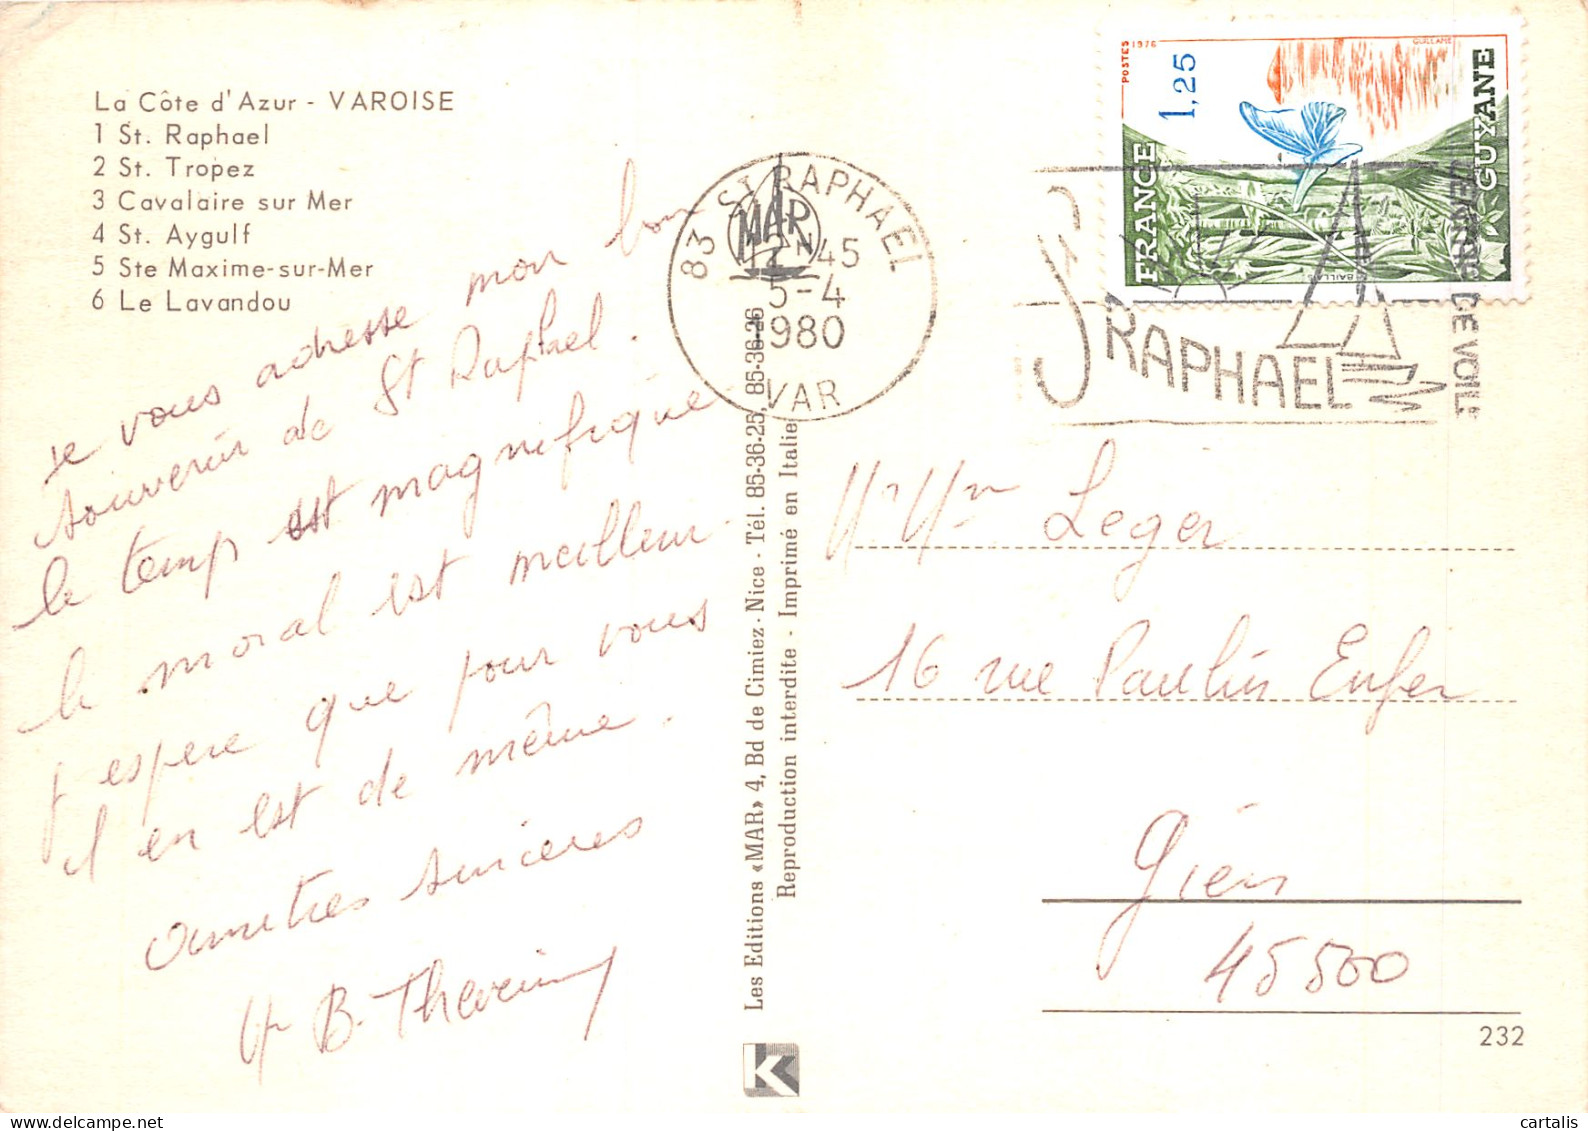 La Côte d'Azur - VAROISE
1 St. Raphael
2 St. Tropez
3 Cavalaire sur Mer
4 St. Aygulf
5 Ste Maxime-sur-Mer
6 Le Lavandou
je vous adresse mon bon
souvenir de St Raphael.
le temp est magnifique
le moral est meilleur
j espere que pour vous
il en est de même.
amitres sinceres
B.
Les Editions «MAR» 4, Bd de Cimiez - Nice - Tél. 85-36-25, 85-36-26
Reproduction interdite - Imprimé en Italie
MAR
K
83 ST RAPHAEL
12-45
5-4
1980
VAR
POSTES 1976
1,25
FRANCE
GUYANE
ST RAPHAEL
DE VOILE
Mr Mme Leger
16 rue Paulin Enfer
Gien
45500
232
cartalis
delcampe.net